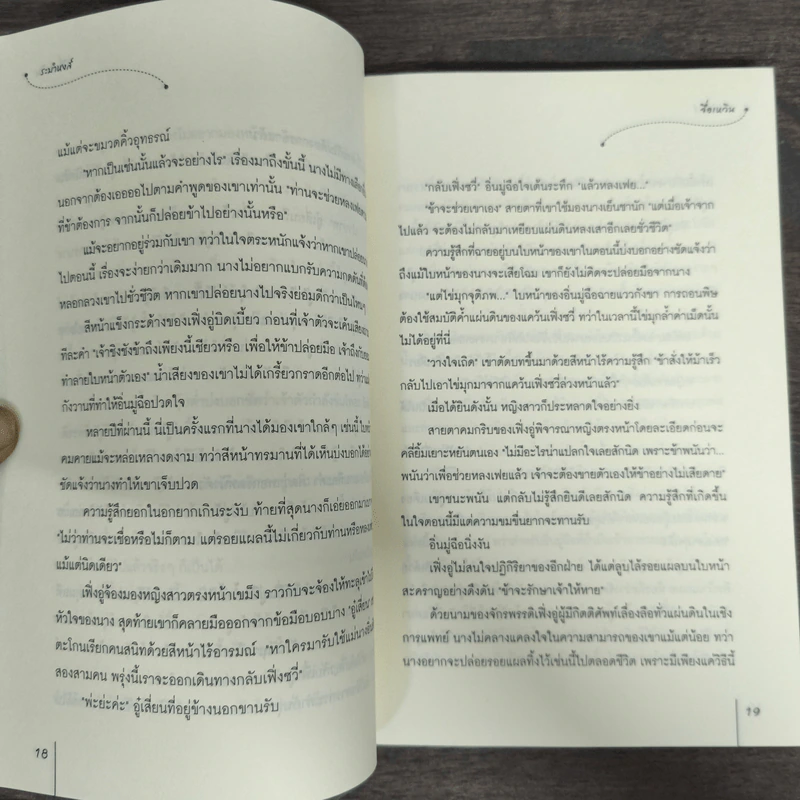 ระบำหงส์
แม้แต่จะขมวดคิ้วอุทธรณ์
"หากเป็นเช่นนั้นแล้วจะอย่างไร" เรื่องมาถึงขั้นนี้ นางไม่มีทางเลือก
นอกจากต้องเออออไปตามคำพูดของเขาเท่านั้น "ท่านจะช่วยหลงเฟย
ที่ข้าต้องการ จากนั้นก็ปล่อยข้าไปอย่างนั้นหรือ"
แม้จะอยากอยู่ร่วมกับเขา ทว่าในใจตระหนักแจ้งว่าหากเขาปล่อย
ไปตอนนี้ เรื่องจะง่ายกว่าเดิมมาก นางไม่อยากแบกรับความกดดันที่
หลอกลวงเขาไปชั่วชีวิต หากเขาปล่อยนางไปจริงย่อมดีกว่าเป็นไหนๆ
สีหน้าแข็งกระด้างของเฟิ่งอู่บิดเบี้ยว ก่อนที่เจ้าตัวจะเค้นเสียง
ทีละคำ "เจ้าชิงชังข้าถึงเพียงนี้เชียวหรือ เพื่อให้ข้าปล่อยมือ เจ้าถึงกับ
ทำลายใบหน้าตัวเอง" น้ำเสียงของเขาไม่ได้เกรี้ยวกราดอีกต่อไป
กังวานที่ทำให้อิ่นมู่ฉือปวดใจ
หลายปีที่ผ่านนี้ นี่เป็นครั้งแรกที่นางได้มองเขาใกล้ๆ เช่นนี้
คมคายแม้จะหล่อเหลางดงาม ทว่าสีหน้าทรมานที่ได้เห็นบ่งบอก
ชัดแจ้งว่านางทำให้เขาเจ็บปวด
ความรู้สึกยอกในอกยากเกินระงับ ท้ายที่สุดนางก็เอ่ยออกมา
"ไม่ว่าท่านจะเชื่อหรือไม่ก็ตาม แต่รอยแผลนี้ไม่เกี่ยวกับท่านหรือ
แม้แต่นิดเดียว"
เฟิ่งอู่จ้องมองหญิงสาวตรงหน้าเขม็ง ราวกับจะจ้องให้ทะลุ
หัวใจของนาง สุดท้ายเขาก็คลายมือออกจากข้อมือบอบบาง "อู๋เสี่ยน"
ตะโกนเรียกคนสนิทด้วยสีหน้าไร้อารมณ์ "หาใครมารับใช้แม่นาง
สองสามคน พรุ่งนี้เราจะออกเดินทางกลับเฟิ่งซวี่"
"พ่ะย่ะค่ะ" อู๋เสี่ยนที่อยู่ข้างนอกขานรับ
18
จื่อเหวิน
"กลับเฟิ่งซวี่" อิ่นมู่ฉือใจเต้นระทึก "แล้วหลงเฟย..."
"ข้าจะช่วยเขาเอง" สายตาที่เขาใช้มองนางเย็นชานัก "แต่เมื่อเจ้าจาก
ไปแล้ว จะต้องไม่กลับมาเหยียบแผ่นดินหลงเสาอีกเลยชั่วชีวิต"
ความรู้สึกที่ฉายอยู่บนใบหน้าของเขาในตอนนี้บ่งบอกอย่างชัดแจ้งว่า
ถึงแม้ใบหน้าของนางจะเสียโฉม เขาก็ยังไม่คิดจะปล่อยมือจากนาง
"แต่ไข่มุกจุติภพ..." ใบหน้าของอิ่นมู่ฉือฉายแววกังขา การถอนพิษ
ต้องใช้สมบัติค้ำแผ่นดินของแคว้นเฟิ่งซวี่ ทว่าในเวลานี้ไข่มุกล้ำค่าเม็ดนั้น
ไม่ได้อยู่ที่นี่
"วางใจเถิด" เขาตัดบทขึ้นมาด้วยสีหน้าไร้ความรู้สึก "ข้าสั่งให้ม้าเร็ว
กลับไปเอาไข่มุกมาจากแคว้นเฟิ่งซวี่ล่วงหน้าแล้ว"
เมื่อได้ยินดังนั้น หญิงสาวก็ประหลาดใจอย่างยิ่ง
สายตาคมกริบของเฟิ่งอู่พิจารณาหญิงตรงหน้าโดยละเอียดก่อนจะ
คลี่ยิ้มเยาะหยันตนเอง "ไม่มีอะไรน่าแปลกใจเลยสักนิด เพราะข้าพนันว่า...
พนันว่าเพื่อช่วยหลงเฟยแล้ว เจ้าจะต้องขายตัวเองให้ข้าอย่างไม่เสียดาย"
เขาชนะพนัน แต่กลับไม่รู้สึกยินดีเลยสักนิด ความรู้สึกที่เกิดขึ้น
ในใจตอนนี้มีแต่ความขมขื่นยากจะทานรับ
อิ่นมู่ฉือนิ่งงัน
เฟิ่งอู่ไม่สนใจปฏิกิริยาของอีกฝ่าย ได้แต่ลูบไล้รอยแผลบนใบหน้า
สะคราญอย่างดึงดัน "ข้าจะรักษาเจ้าให้หาย"
ด้วยนามของจักรพรรดิเฟิ่งอู่ผู้มีกิตติศัพท์เลื่องลือทั่วแผ่นดินในเชิง
การแพทย์ นางไม่คลางแคลงใจในความสามารถของเขาแม้แต่น้อย ทว่า
นางอยากจะปล่อยรอยแผลทิ้งไว้เช่นนี้ไปตลอดชีวิต เพราะมีเพียงแค่วิธีนี้
19